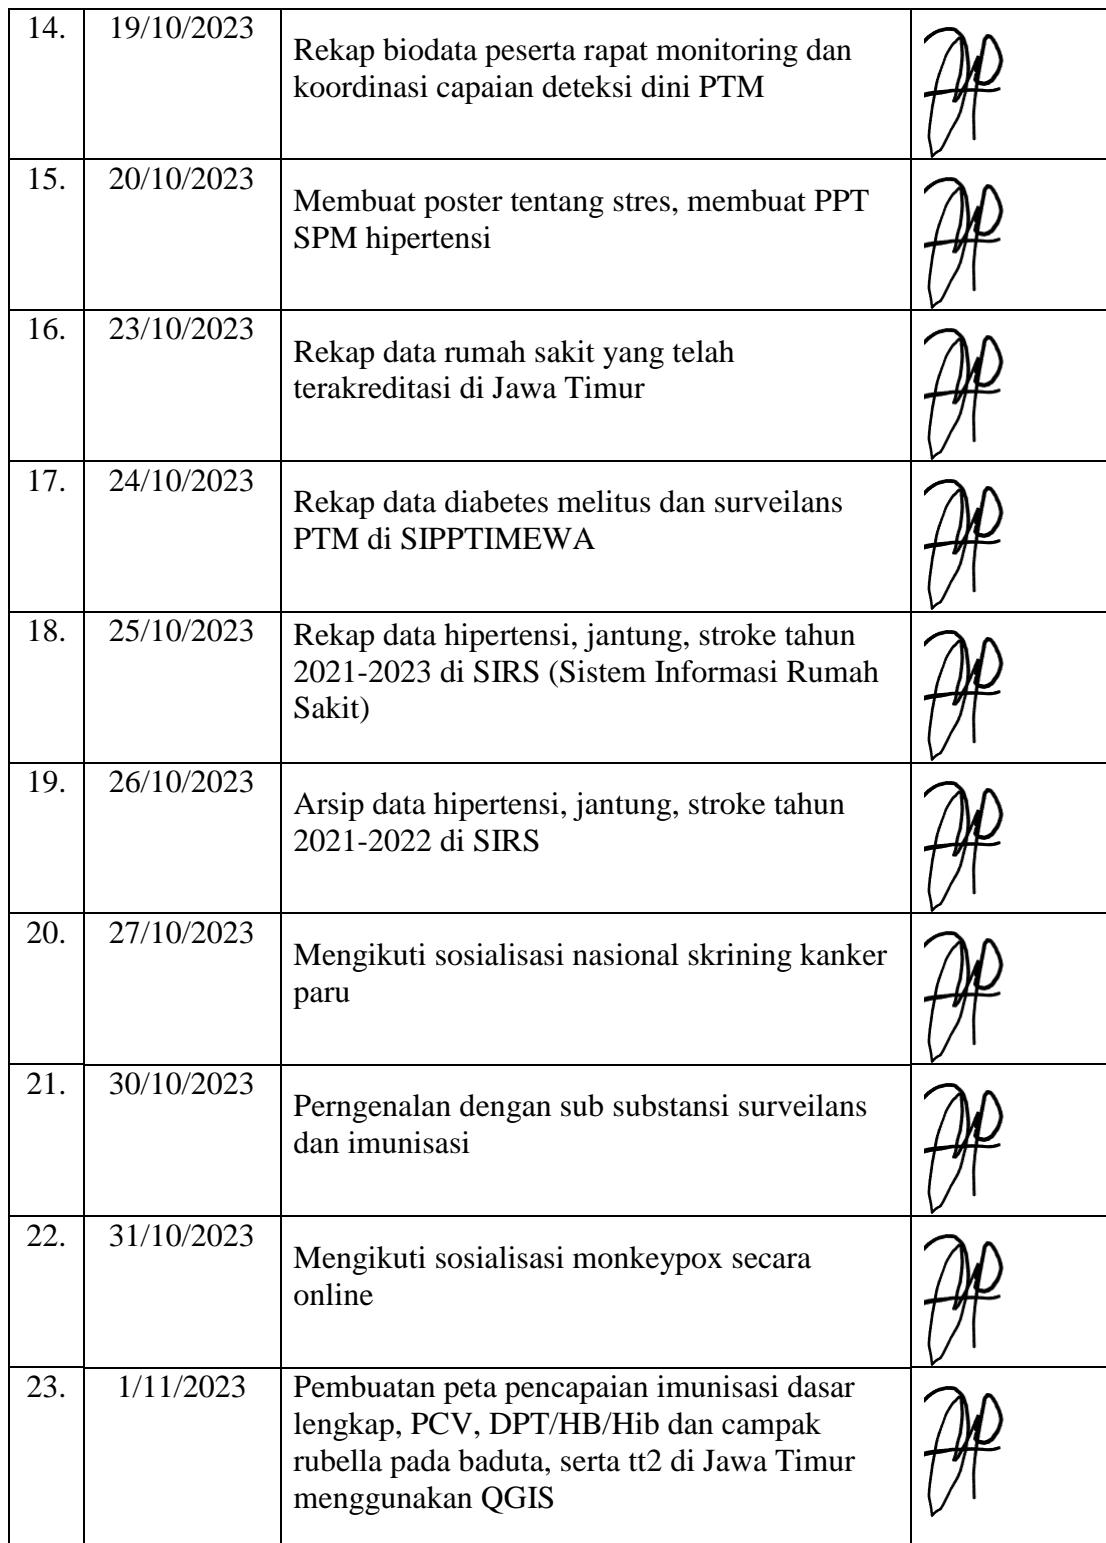 14. 19/10/2023
Rekap biodata peserta rapat monitoring dan
koordinasi capaian deteksi dini PTM
15. 20/10/2023
Membuat poster tentang stres, membuat PPT
SPM hipertensi
16. 23/10/2023
Rekap data rumah sakit yang telah
terakreditasi di Jawa Timur
17. 24/10/2023
Rekap data diabetes melitus dan surveilans
PTM di SIPPTIMEWA
18. 25/10/2023 Rekap data hipertensi, jantung, stroke tahun
2021-2023 di SIRS (Sistem Informasi Rumah
Sakit)
19. 26/10/2023
Arsip data hipertensi, jantung, stroke tahun
2021-2022 di SIRS
20. 27/10/2023
Mengikuti sosialisasi nasional skrining kanker
paru
21. 30/10/2023
Perngenalan dengan sub substansi surveilans
dan imunisasi
22. 31/10/2023
Mengikuti sosialisasi monkeypox secara
online
23. 1/11/2023 Pembuatan peta pencapaian imunisasi dasar
lengkap, PCV, DPT/HB/Hib dan campak
rubella pada baduta, serta tt2 di Jawa Timur
menggunakan QGIS